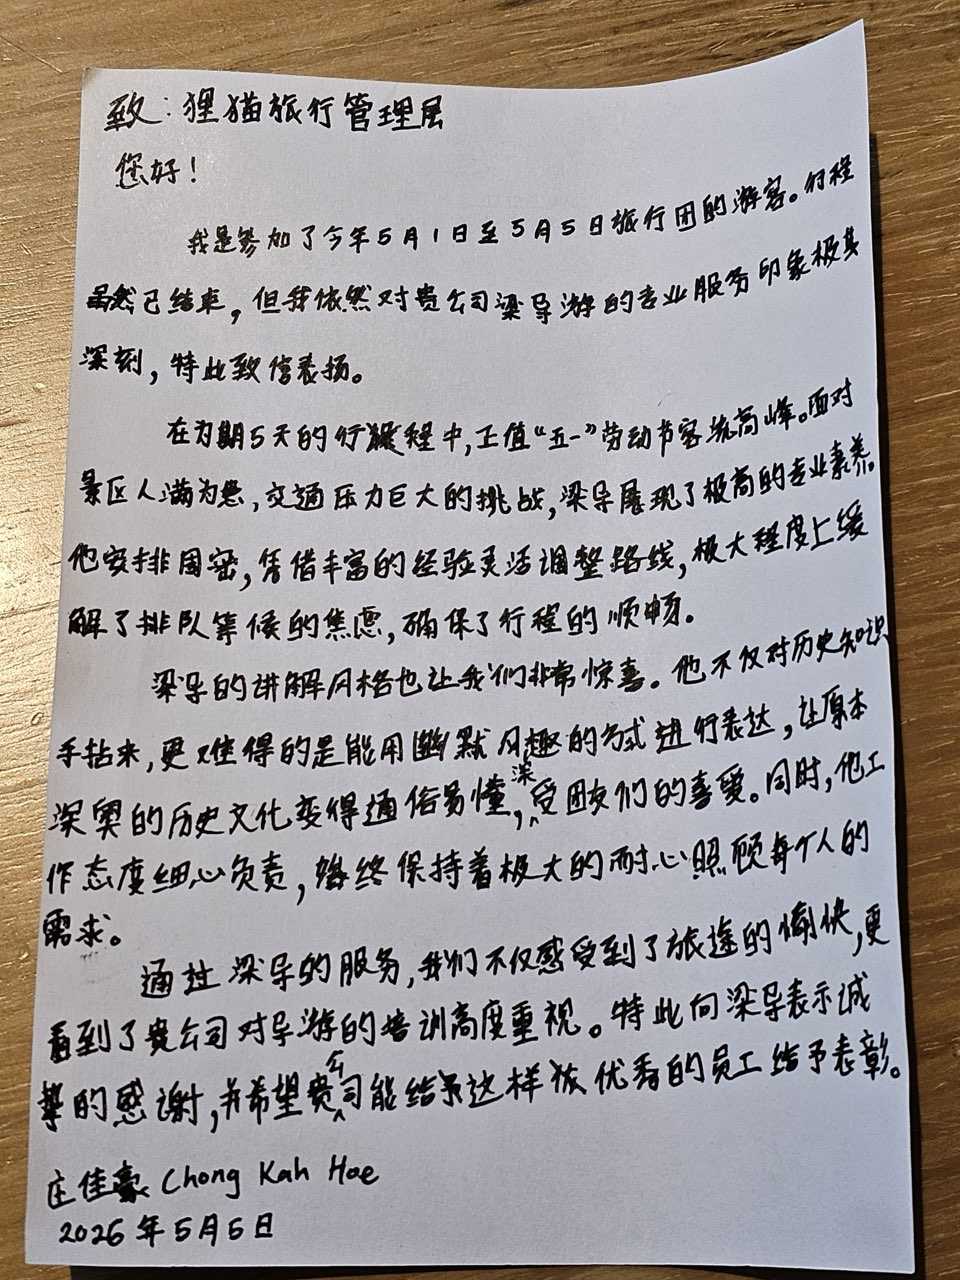 致：狸猫旅行管理层
您好！
我是参加了今年5月1日至5月5日旅行团的游客。行程
虽然已结束，但我依然对贵公司梁导游的专业服务印象极其
深刻，特此致信表扬。
在为期5天的行程中，正值“五一”劳动节客流高峰。面对
景区人满为患，交通压力巨大的挑战，梁导展现了极高的专业素养。
他安排周密，凭借丰富的经验灵活调整路线，极大程度上缓
解了排队等候的焦虑，确保了行程的顺畅。
梁导的讲解风格也让我们非常惊喜。他不仅对历史知识
手拈来，更难得的是能用幽默风趣的方式进行表达，让原本
深奥的历史文化变得通俗易懂，深受团友们的喜爱。同时，他工
作态度细心负责，始终保持着极大的耐心照顾每个人的
需求。
通过梁导的服务，我们不仅感受到了旅途的愉快，更
看到了贵公司对导游的培训高度重视。特此向梁导表示诚
挚的感谢，并希望贵公司能给予这样优秀的员工给予表彰。
庄佳豪 Chong Kah Hoe
2026年5月5日